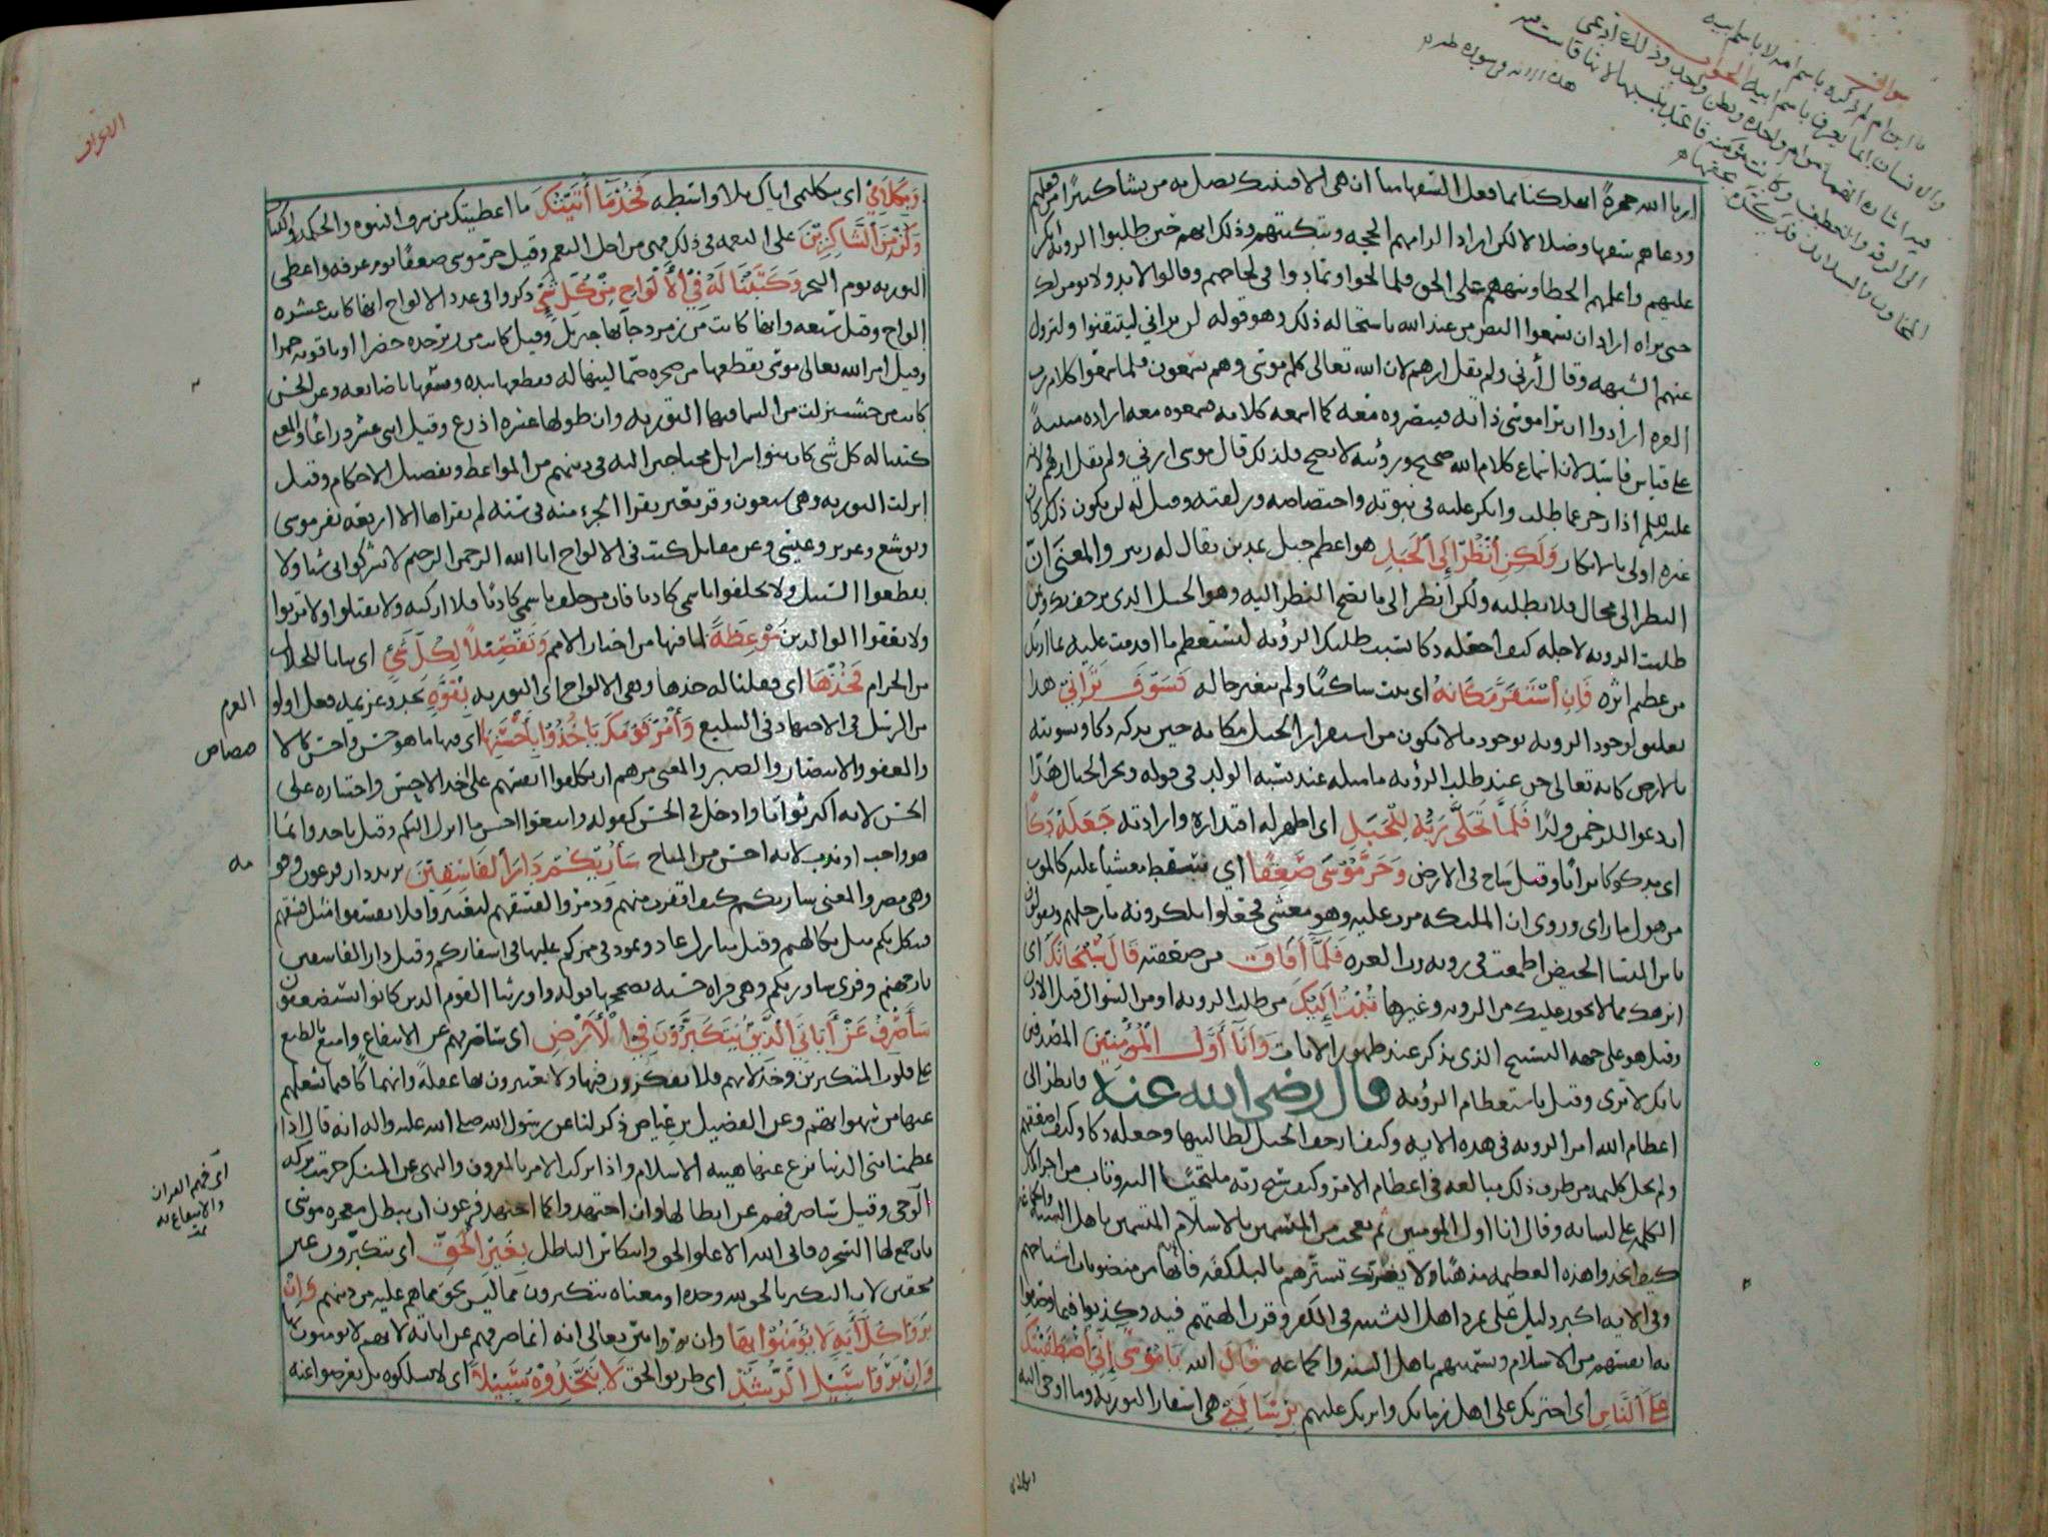 ارنا الله جهرة اتهلكنا بما فعل السفهاء منا ان هي الا فتنتك تضل بها من تشا
ودعاهم سفها وضلالا لكن اراد الزامهم الحجه وتبكيتهم وذلك انهم حين طلبوا الرؤيه انكر
عليهم واعلمهم الخطا ونبههم على الحق فلما لجوا وتمادوا في لجاجهم وقالوا لابد ولن نومن لك
حتى نراه اراد ان يسمعوا النص من عند الله باستحاله ذلك وهو قوله لن تراني ليتيقنوا ويزول
عنهم الشبهه وقال أرني ولم يقل ارهم لان الله تعالى كلم موسى وهم يسمعون فلما سمعوا كلام رب
العزه ارادوا ان يرا موسى ذاته فيبصروه معه كما اسمعه كلامه فسمعوه معه اراده مبنية
على قياس فاسد لان اسماع كلام الله صحيح ورؤيته لا تصح فلذلك قال موسى ارني ولم يقل ارهم
اذا زجر عما طلب وانكر عليه في نبوته واختصاصه وزلفته وقيل له لن يكون ذلك كان
غيره اولى بالانكار وَلَكِنِ انْظُرْ إِلَى الْجَبَلِ هو اعظم جبل بمدين يقال له زبير والمعنى ان
النظر الي محال فلا تطلبه ولكن انظر الى ما يصح النظر اليه وهو الجبل الذي يرجف بك وبمن
طلبت الرويه لاجله كيف اجعله دكا بسبب طلبك الرؤيه لتستعظم ما اقدمت عليه بما اريك
من عظم اثره فَإِنِ اسْتَقَرَّ مَكَانَهُ اي ثبت ساكنا ولم يتغير حاله فَسَوْفَ تَرَانِي هذا
تعليق لوجود الرويه بوجود ما لا يكون من استقرار الجبل مكانه حين يدكه دكا ويسويه
بالارض كانه تعالى حقق عند طلب الرؤيه ما مثله عند نسبه الولد في قوله وتخر الجبال هَدًّا
ان دعوا للرحمن ولدا فَلَمَّا تَجَلَّى رَبُّهُ لِلْجَبَلِ اي اظهر له اقتداره وارادته جَعَلَهُ دَكًّا
اي مدكوكا ترابا وقيل ساخ في الارض وَخَرَّ مُوسَى صَعِقًا اي سقط مغشيا عليه كالموت
من هول ما راى وروي ان الملئكه مرت عليه وهو مغشي فجعلوا يلكزونه بارجلهم ويقولون
يا بن النسا الحيض اطمعت في رويه رب العزه فَلَمَّا أَفَاقَ من صعقته قَالَ سُبْحَانَكَ اي
انزهك مما لا يجوز عليك من الرويه وغيرها تُبْتُ إِلَيْكَ من طلب الرويه او من السوال قبل الاذن
وقيل هو على جهه التسبيح الذي يذكر عند ظهور الايات وَأَنَا أَوَّلُ الْمُؤْمِنِينَ المصدقين
بانك لا ترى وقيل باستعظام الرؤيه قال رضي الله عنه فانظر الى
اعظام الله امر الرويه في هذه الايه وكيف ارجف الجبل بطالبيها وجعله دكا وكيف اصعقهم
ولم يخل كليمه من طرف ذلك مبالغه في اعظام الامر وكيف سبح ربه ملتجئا اليه وتاب من اجرا تلك
الكلمه على لسانه وقال انا اول المومنين ثم تعجب من المتسمين بالاسلام المتسمين باهل السنه والجماعه
كيف اتخذوا هذه العظيمه مذهبا ولا يغرنك تسترهم بالبلكفه فانها من منصوبات اشياخهم
وفي الايه اكبر دليل على تمرد اهل التشبيه في الكفر
من الاسلام وتسميتهم باهل السنه والجماعه قال الله يَا مُوسَى إِنِّي اصْطَفَيْتُكَ
عَلَى النَّاسِ اي اخترتك على اهل زمانك واثرتك عليهم بِرِسَالَتِي هي اسفار التوريه وما اوحى اليه
الاعراف
وَبِكَلَامِي اي بتكليمي اياك بلا واسطه فَخُذْ مَا آتَيْتُكَ ما اعطيتك من شرف النبوه والحكمه
وَكُنْ مِنَ الشَّاكِرِينَ على النعمه في ذلك فهي من اجل النعم وقيل خر موسى صعقا يوم عرفه واعطي
التوريه يوم النحر وَكَتَبْنَا لَهُ فِي الْأَلْوَاحِ مِنْ كُلِّ شَيْءٍ ذكروا في عدد الالواح انها كانت عشره
الواح وقيل سبعه وانها كانت من زمرد جا بها جبريل وقيل كانت من زبرجده خضرا او ياقوته حمرا
وقيل امر الله تعالى موسى بقطعها من صخره صما لينها له فقطعها بيده وشقها باصابعه وعن الحسن
كانت من خشب نزلت من السما فيها التوريه وان طولها عشره اذرع وقيل اثنى عشر ذراعا والمعنى
كتبنا له كل شي كان بنو اسرايل محتاجين اليه في دينهم من المواعظ وتفصيل الاحكام وقيل
انزلت التوريه وهي سبعون وقر بعير يقرا الجزء منه في سنه لم يقراها الا اربعه نفر موسى
ويوشع وعزير وعيسى وعن مقاتل كتب في الالواح انا الله الرحمن الرحيم لا تشركوا بي شيا ولا
تقطعوا السبيل ولا تحلفوا باسمي كاذبا فان من حلف باسمي كاذبا فلا ازكيه ولا تقتلوا ولا تزنوا
ولا تعقوا الوالدين مَوْعِظَةً لما فيها من اخبار الامم وَتَفْصِيلًا لِكُلِّ شَيْءٍ اي بيانا للحلال
من الحرام فَخُذْهَا اي فقلنا له خذها ويعني الالواح اي التوريه بِقُوَّةٍ بجد وعزيمه فعل اولو
العزم
من الرسل في الاجتهاد في التبليغ وَأْمُرْ قَوْمَكَ يَأْخُذُوا بِأَحْسَنِهَا اي فيها ما هو حسن واحسن كالا
قصاص
والعفو والانتصار والصبر والمعنى مرهم ان يكلفوا انفسهم على اخذ الاحسن واختياره على
الحسن لانه اكثر ثوابا وادخل في الحسن كقوله واتبعوا احسن ما انزل اليكم وقيل ياخذوا بما
هو واجب او ندب لانه احسن من المباح سَأُرِيكُمْ دَارَ الْفَاسِقِينَ يريد دار فرعون وقو
مه
وهي مصر والمعنى ساريكم كيف اقفرت منهم ودمروا لفسقهم لتعتبروا فلا تفسقوا مثل فسقهم
فينكل بكم مثل نكالهم وقيل منازل عاد وثمود في ممركم عليها في اسفاركم وقيل دار الفاسقين
نار جهنم وقرئ ساورثكم وهي قراه حسنه يصححها قوله واورثنا القوم الذين كانوا يستضعفون
سَأَصْرِفُ عَنْ آيَاتِيَ الَّذِينَ يَتَكَبَّرُونَ فِي الْأَرْضِ اي ساصرفهم عن الانتفاع وامنع بالطبع
على قلوب المتكبرين وخذلانهم فلا يفكرون فيها ولا يعتبرون بها غفلة وانهماكا فيما يشغلهم
عنها من شهواتهم وعن الفضيل بن عياض ذكر لنا عن رسول الله صلى الله عليه واله انه قال اذا
عظمت امتي الدنيا نزع عنها هيبه الاسلام واذا تركت الامر بالمعروف والنهي عن المنكر حرمت بركه
الوحي وقيل ساصرفهم عن ابطالها وان اجتهدوا كما اجتهد فرعون ان يبطل معجزه موسى
اي فهم القران
والانتفاع به
بان جمع لها السحره فابى الله الا علو الحق وانتكاس الباطل بِغَيْرِ الْحَقِّ اي يتكبرون غير
محقين لان التكبر بالحق لله وحده او معناه يتكبرون بما ليس بحق مما هم عليه من دينهم وَإِنْ
يَرَوْا كُلَّ آيَةٍ لَا يُؤْمِنُوا بِهَا
وَإِنْ يَرَوْا سَبِيلَ الرُّشْدِ اي طريق الحق لَا يَتَّخِذُوهُ سَبِيلًا اي لا يسلكوه بل يعرضوا عنه